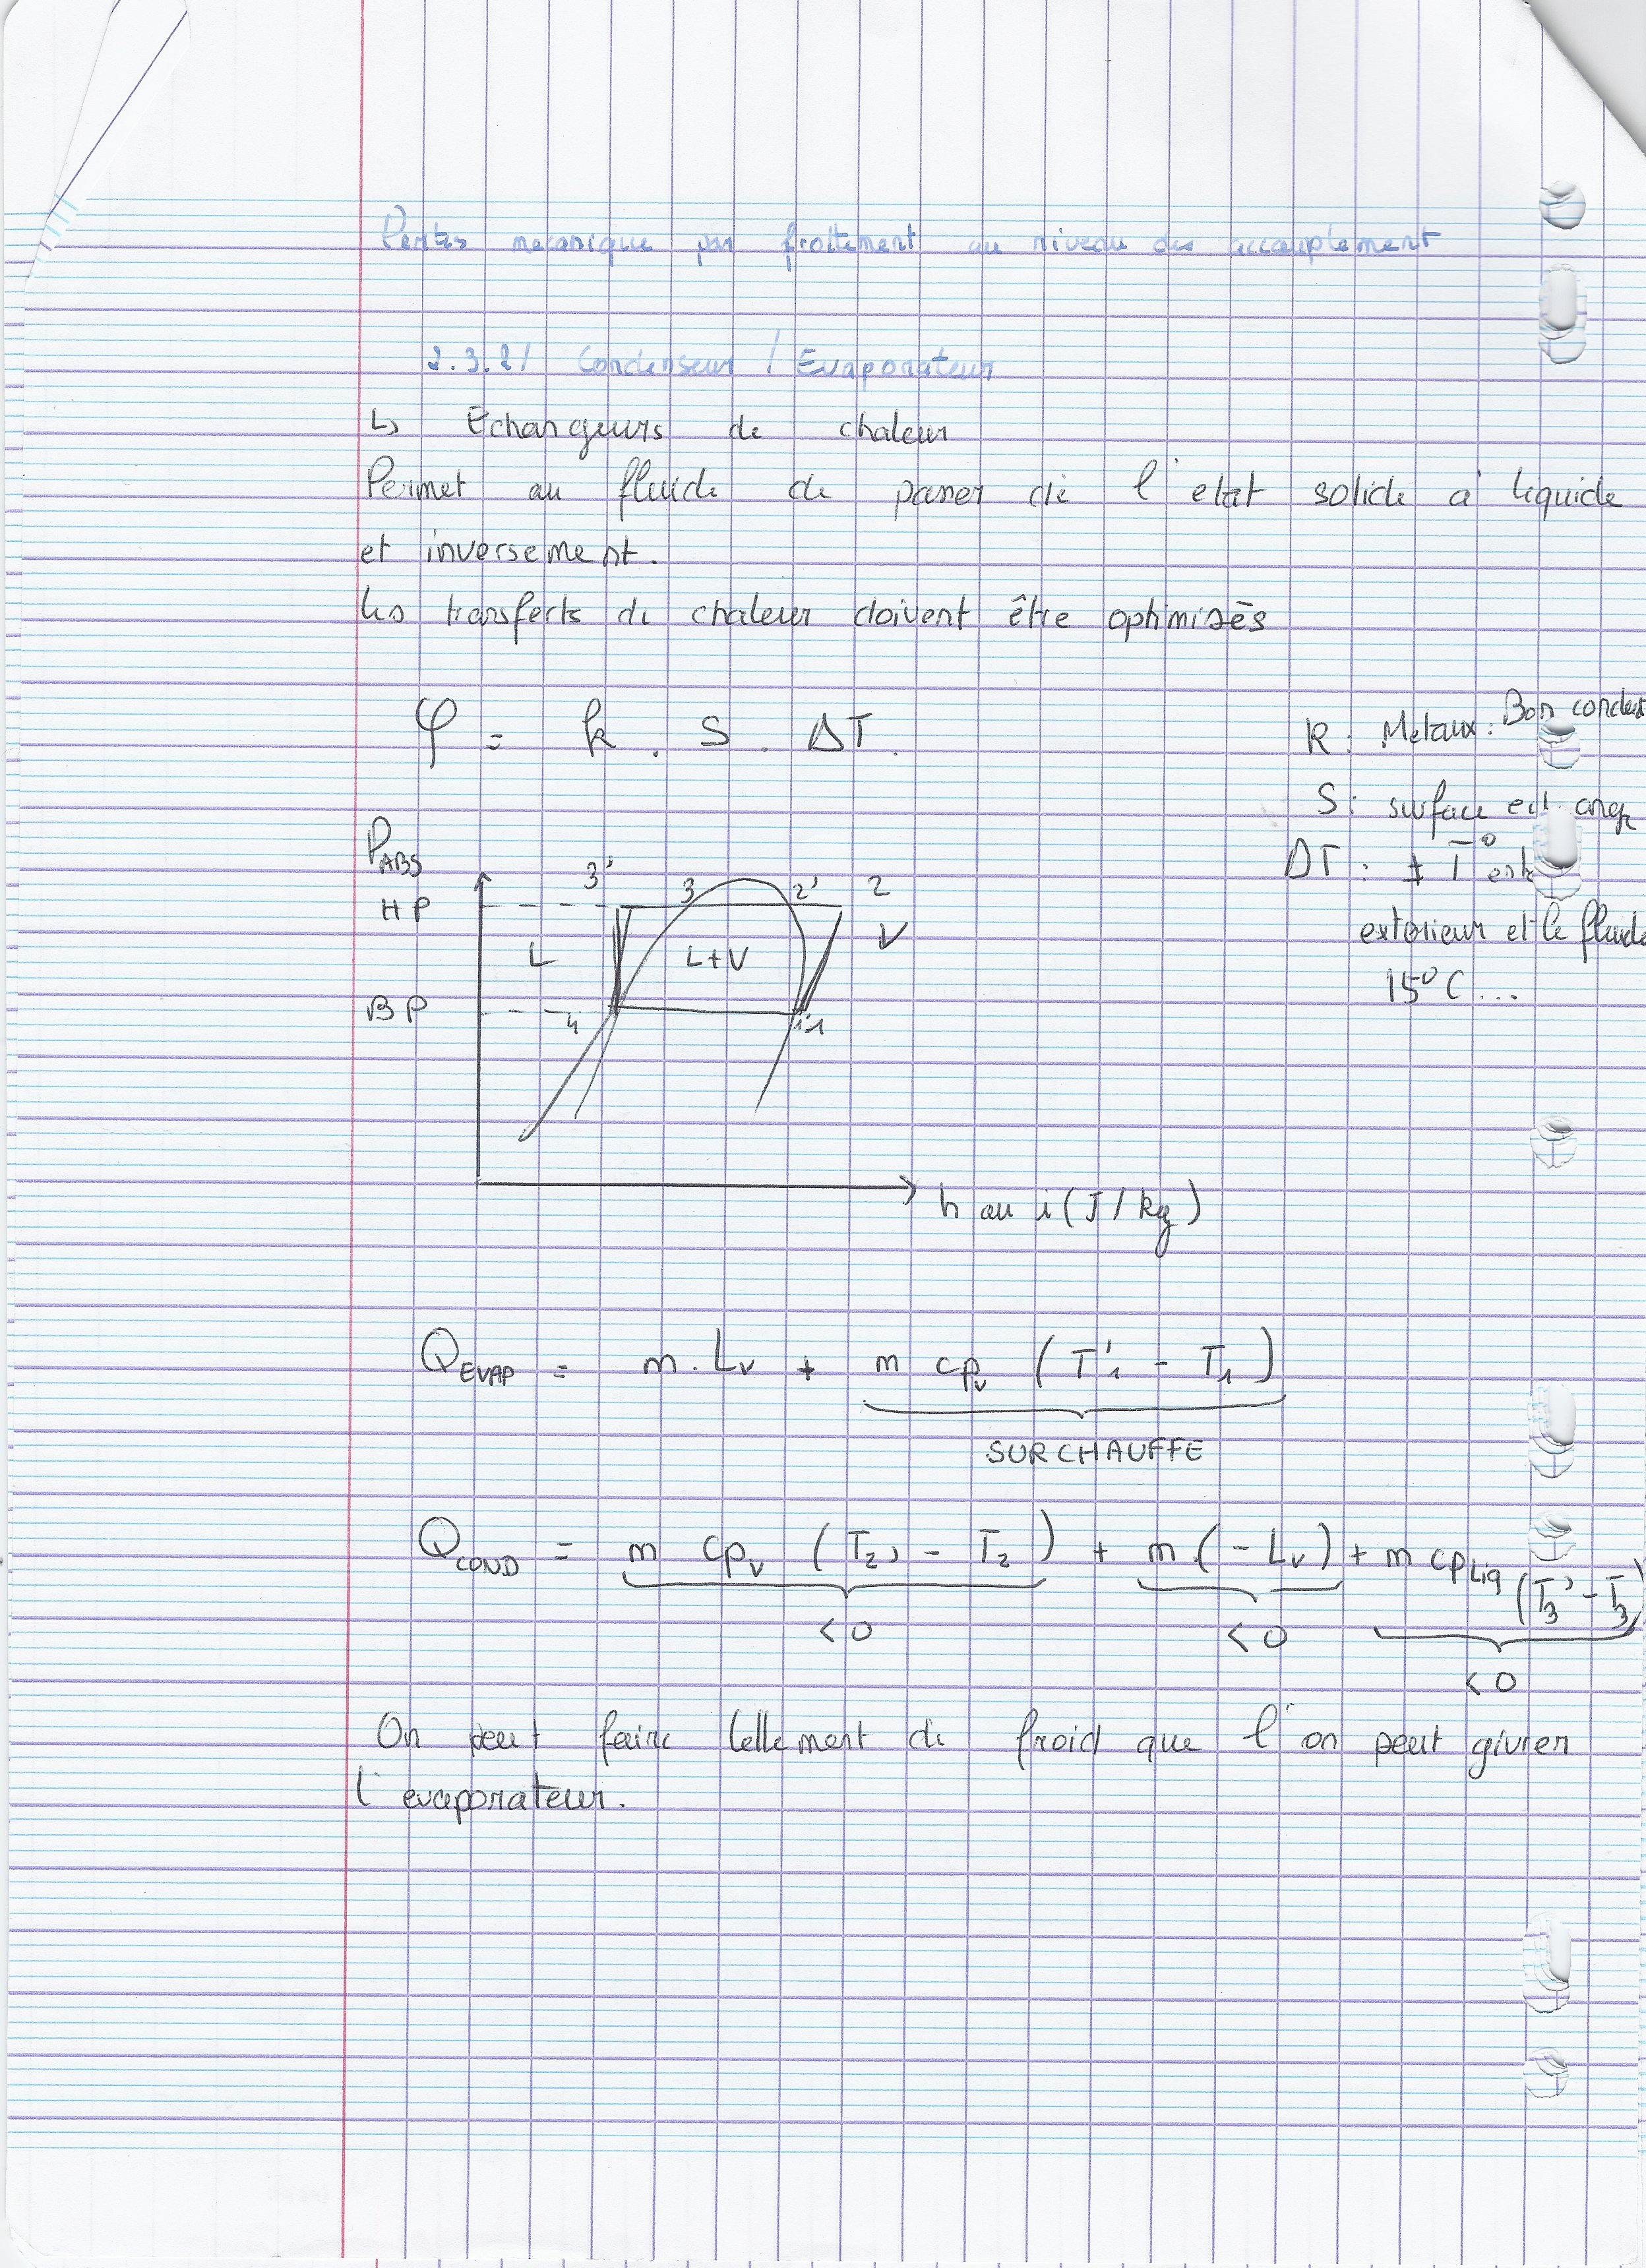 Pertes mecanique par frottement au niveau des accouplement
2.3.2/ Condenseur / Evaporateur
↳ Echangeurs de chaleur
Permet au fluide de passer de l'etat solide a liquide
et inversement.
Les transferts de chaleur doivent être optimisés
φ = k . S . ΔT.
k : Métaux : Bon conduct
S : surface
ΔT : ≠ T°
exterieur et le fluide
15°C ...
P_ABS
HP
BP
3' 3 2' 2
L L+V V
4 1' 1
h ou i (J/kg)
Q_EVAP = m . Lv + m cp_v (T'_1 - T_1)
SURCHAUFFE
Q_COND = m cp_v (T_2' - T_2) + m (- Lv) + m cp_Liq (T_3' - T_3)
< 0 < 0 < 0
On peut faire tellement de froid que l'on peut givrer
l'evaporateur.